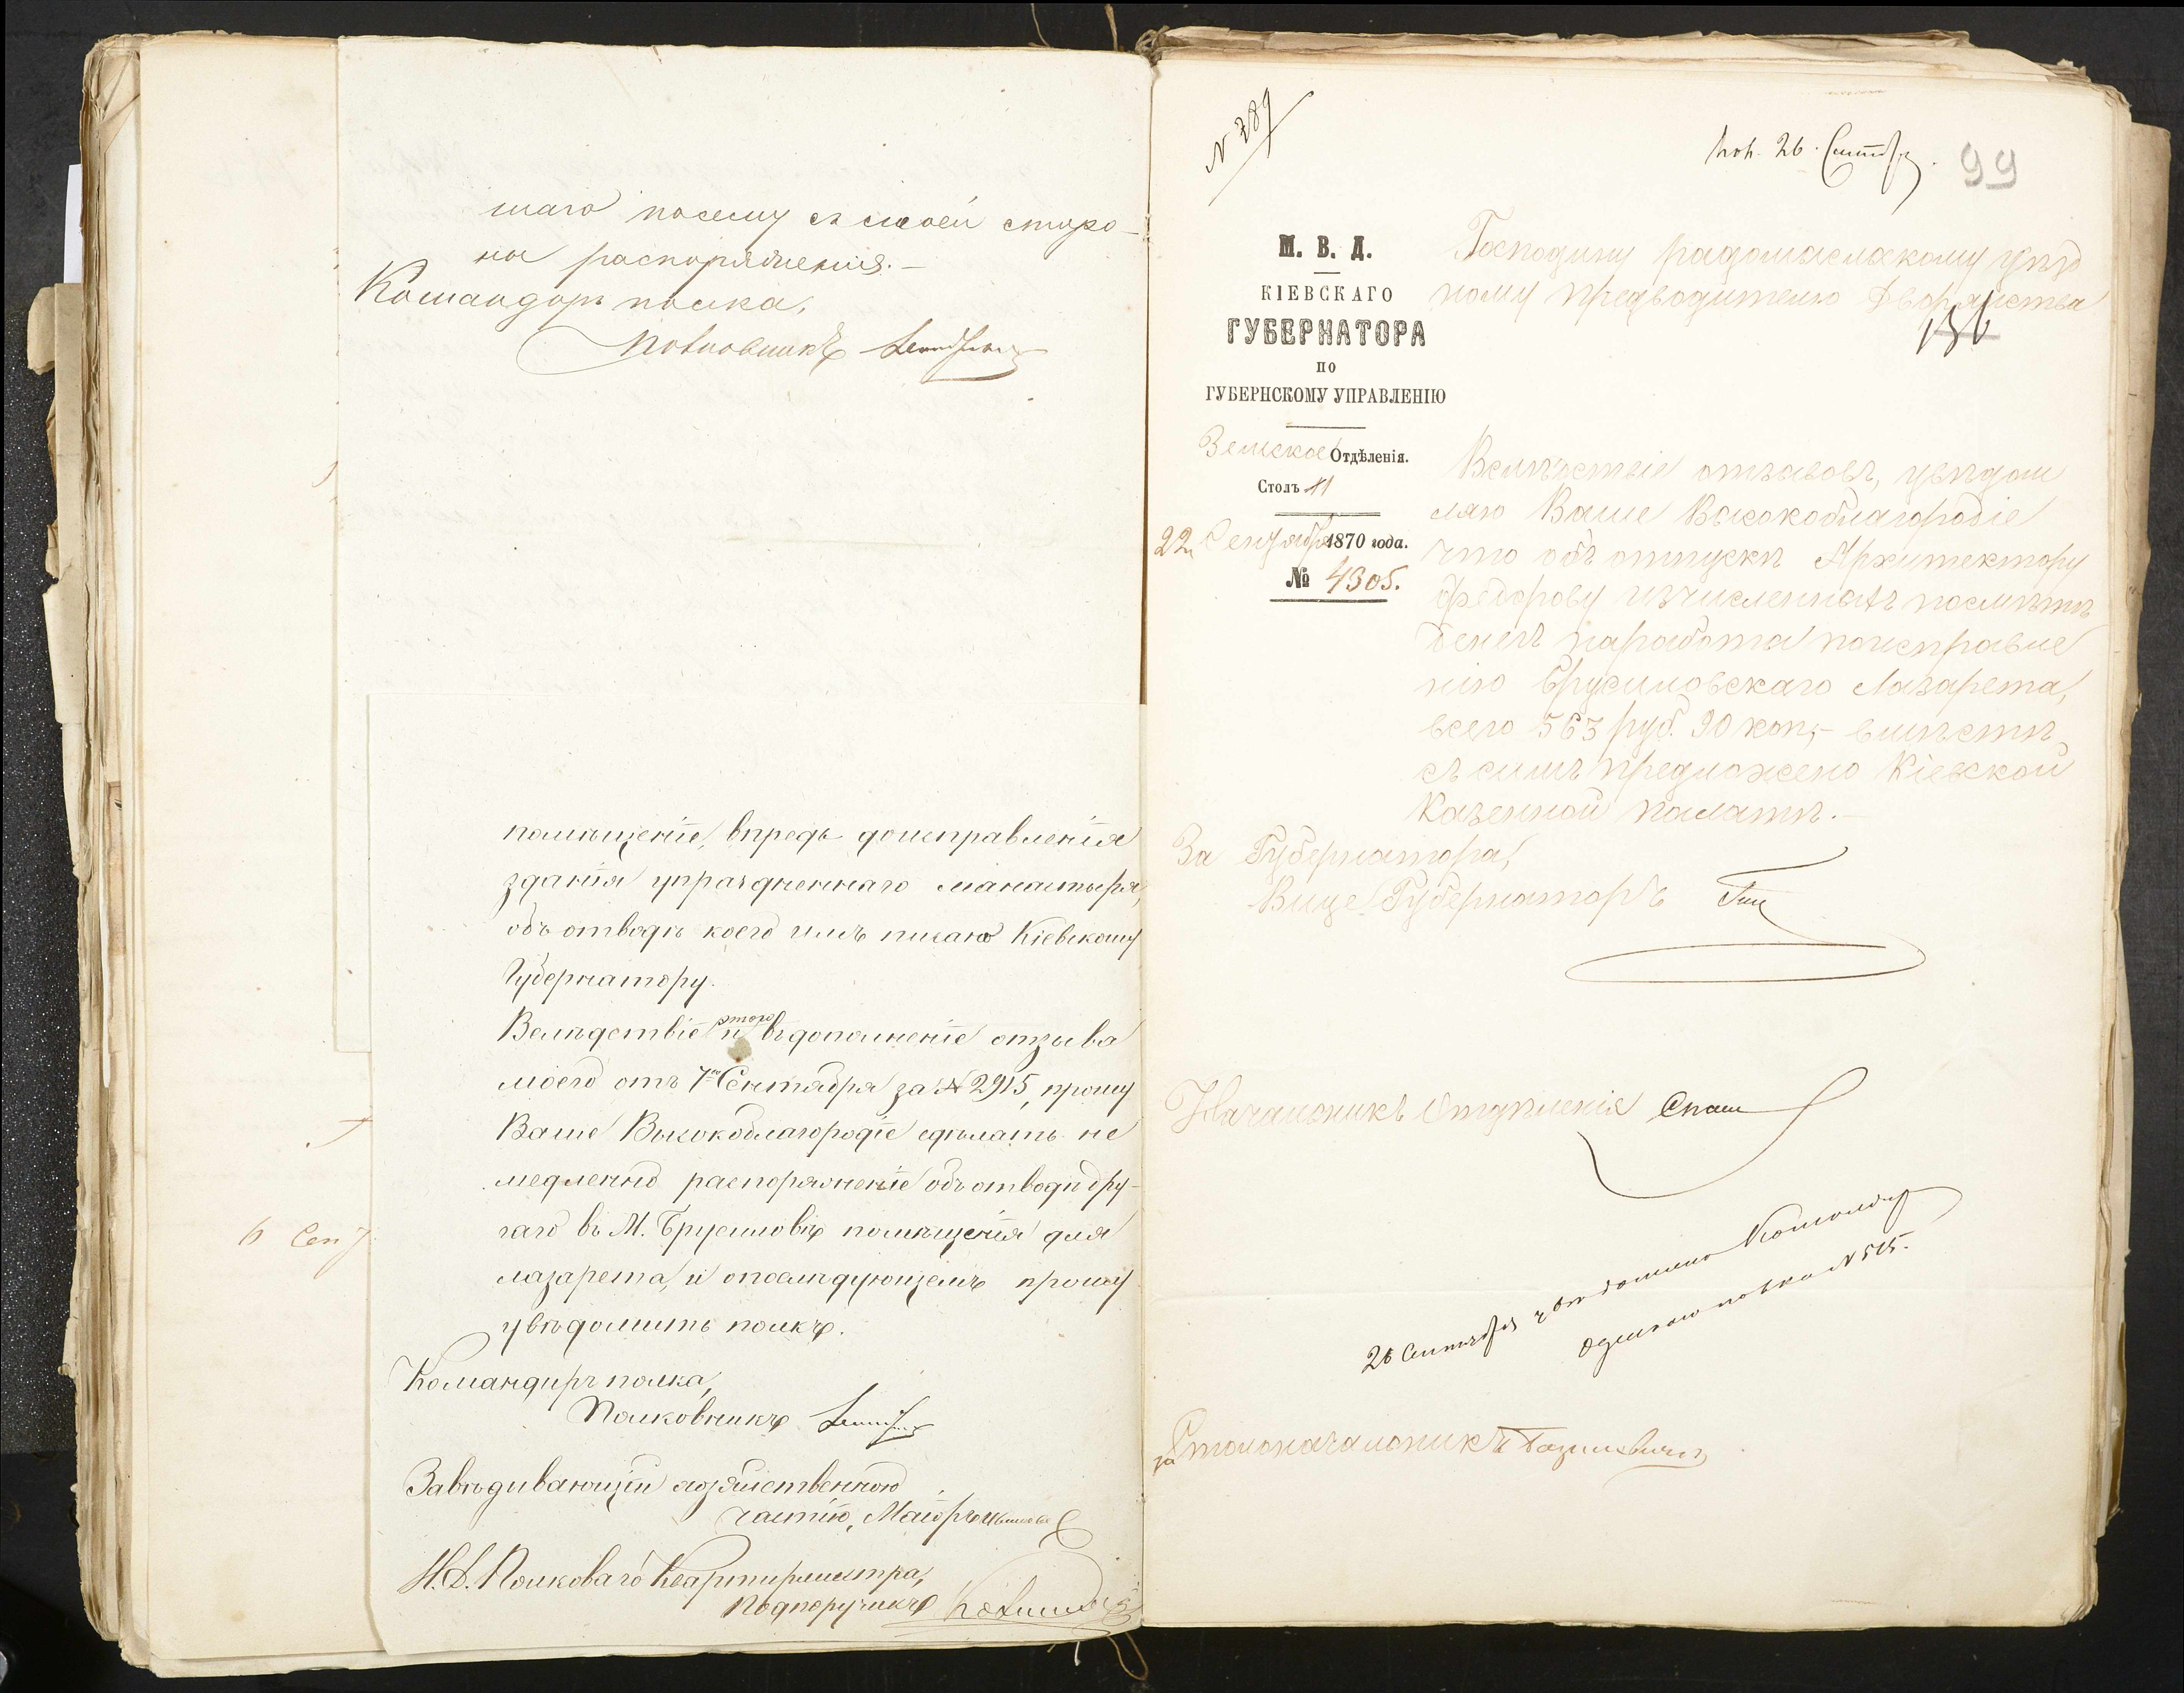 шаго посему съ своей сторо-
ны распоряженія.-
Командиръ полка,
Полковникъ
помѣщеніе, впредь доисправленія
зданія упраздненнаго манастыря,
объ отводѣ коего имъ писано Кіевскому
Губернатору.
Вслѣдствіе этого и въдополненіе отзыва
моего отъ 7го Сентября за № 2915, прошу
Ваше Высокоблагородіе сдѣлать не
медленно распоряженіе объ отводѣ дру-
гаго въ М. Брусиловѣ помѣщенія для
лазарета, и опослѣдующемъ прошу
увѣдомить полкъ.
Командиръ полка,
Полковникъ
Завѣдивающій хозяйственною
частію, Маіоръ
И. Д. Полковаго Квартирмистра,
Подпоручикъ
6 Сен
N 789
Пол. 26. Сентябр.
99
М. В. Д.
КІЕВСКАГО
ГУБЕРНАТОРА
ПО
ГУБЕРНСКОМУ УПРАВЛЕНІЮ
Земское Отдѣленія.
Столъ 11
22 Сентября 1870 года.
№ 4305.
Господину радомысльскому уѣзд
ному предводителю Дворянства
136
Вслѣдствіе отзывовъ, увѣдом
ляю Ваше Высокоблагородіе
что объ отпускѣ Архитектору
Федорову изчисленныхъ посмѣтѣ
денегъ наработы поисправле
нію Брусиловскаго Лазарета,
всего 563 руб. 90 коп,- вмѣстѣ
съ симъ предложено Кіевской
Казенной палатѣ.-
За Губернатора,
Вице Губернаторъ
Начальникъ Отдѣленія
26 Сентября увѣдомлено Командиру
Одесскаго полка N 515.
за Столоначальникъ